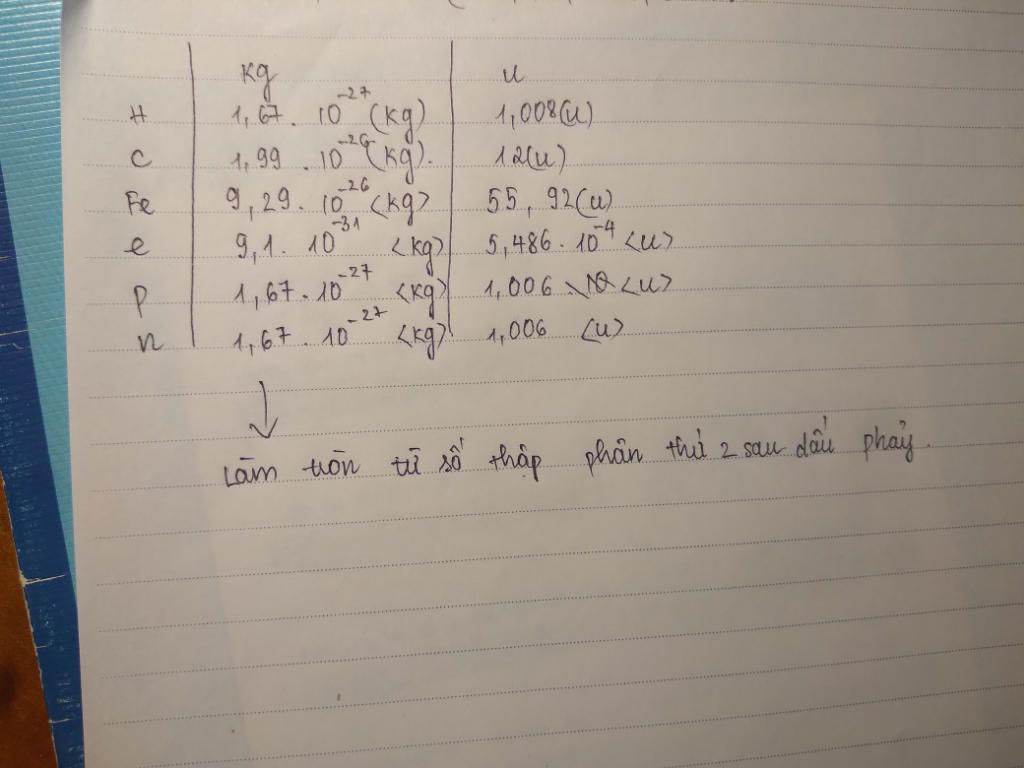 kg u
H 1,67. 10⁻²⁷ (kg) 1,008(u)
C 1,99 . 10⁻²⁶ (kg). 12(u)
Fe 9,29. 10⁻²⁶ <kg> 55, 92(u)
e 9,1. 10⁻³¹ <kg> 5,486. 10⁻⁴ <u>
p 1,67. 10⁻²⁷ <kg> 1,006 <u>
n 1,67. 10⁻²⁷ <kg> 1,006 <u>
↓
Làm tròn từ số thập phân thứ 2 sau dấu phẩy.